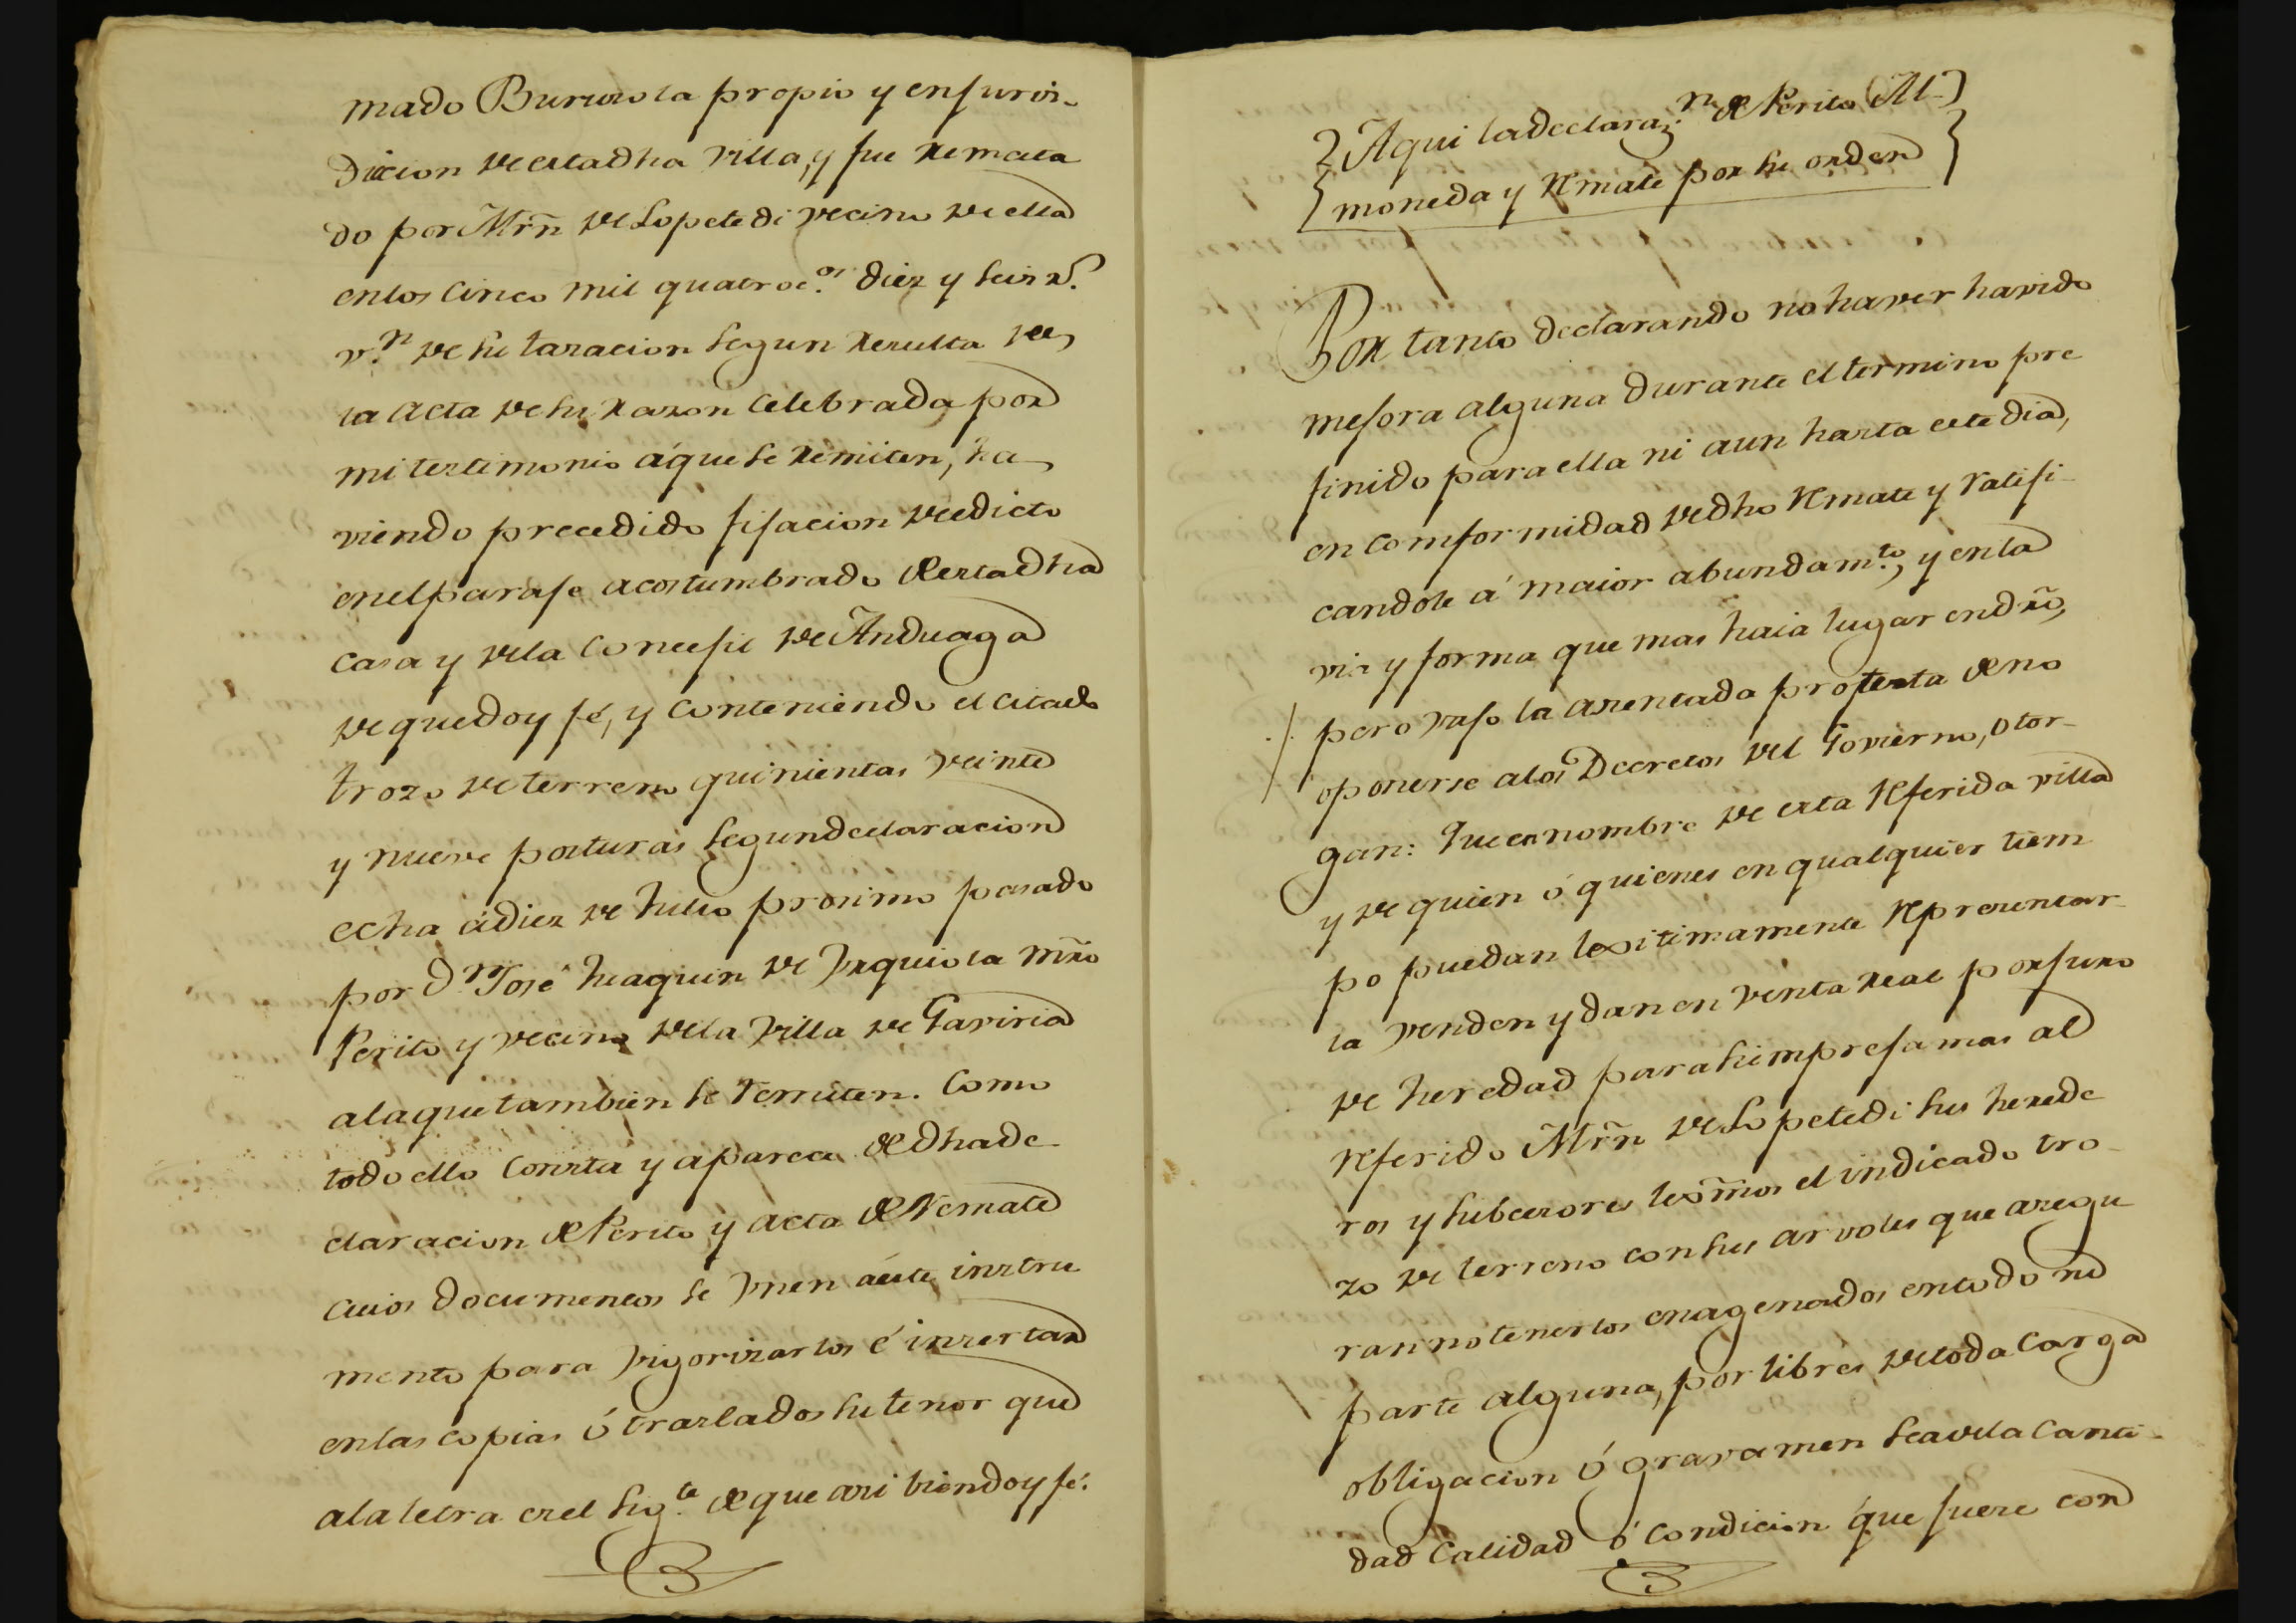 mado Burusola propio y en juris-
diccion de esta dha villa, y fue remata
do por Mrñ de Lopetedi vecino de ella
en los cinco mil quatroc.os diez y seis r.s
v.n de su tasacion segun resulta de
la acta de su razon celebrada por
mi testimonio á que se remiten, ha
viendo precedido fijacion de edicto
en el paraje acostumbrado de esta dha
casa y de la Concejil de Anduaga
de que doy fé, y conteniendo el citado
trozo de terreno quinientas veinte
y nueve posturas segun declaracion
echa á diez de Julio proximo pasado
por D.n José Juaquin de Urquiola mr̃o
Perito y vecino de la Villa de Gaviria
a la que tambien se remiten. Como
todo ello consta y aparece de dha de-
claracion de Perito y acta de remate
cuios documentos se unen á este instru
mento para vigorizarlos é insertar
en las copias ó traslados su tenor que
a la letra es el sig.te de que asi bien doy fé.
Aqui la declaraz.n de Perito (Al-)
moneda y Remate por su orden
Por tanto declarando no haver havido
mejora alguna durante el termino pre
finido para ella ni aun hasta este dia,
en comformidad de dho Remate y ratifi-
candole á maior abundam.to, y en la
via y forma que mas haia lugar en dr̃o,
pero vajo la asentada protesta de no
oponerse a los Decretos del Govierno, otor-
gan: Que en nombre de esta Referida villa
y de quien ó quienes en qualquier tiem
po puedan lexitimamente Representar-
la venden y dan en venta real por juro
de heredad para siempre jamas al
Referido Mrñ de Lopetedi sus herede
ros y subcesores lexm̃os el indicado tro-
zo de terreno con sus arvoles que asegu
ran no tenerlos enagenados en todo ni
parte alguna, por libres de toda carga
obligacion ó gravamen sea de la canti-
dad calidad ó condicion que fuere con